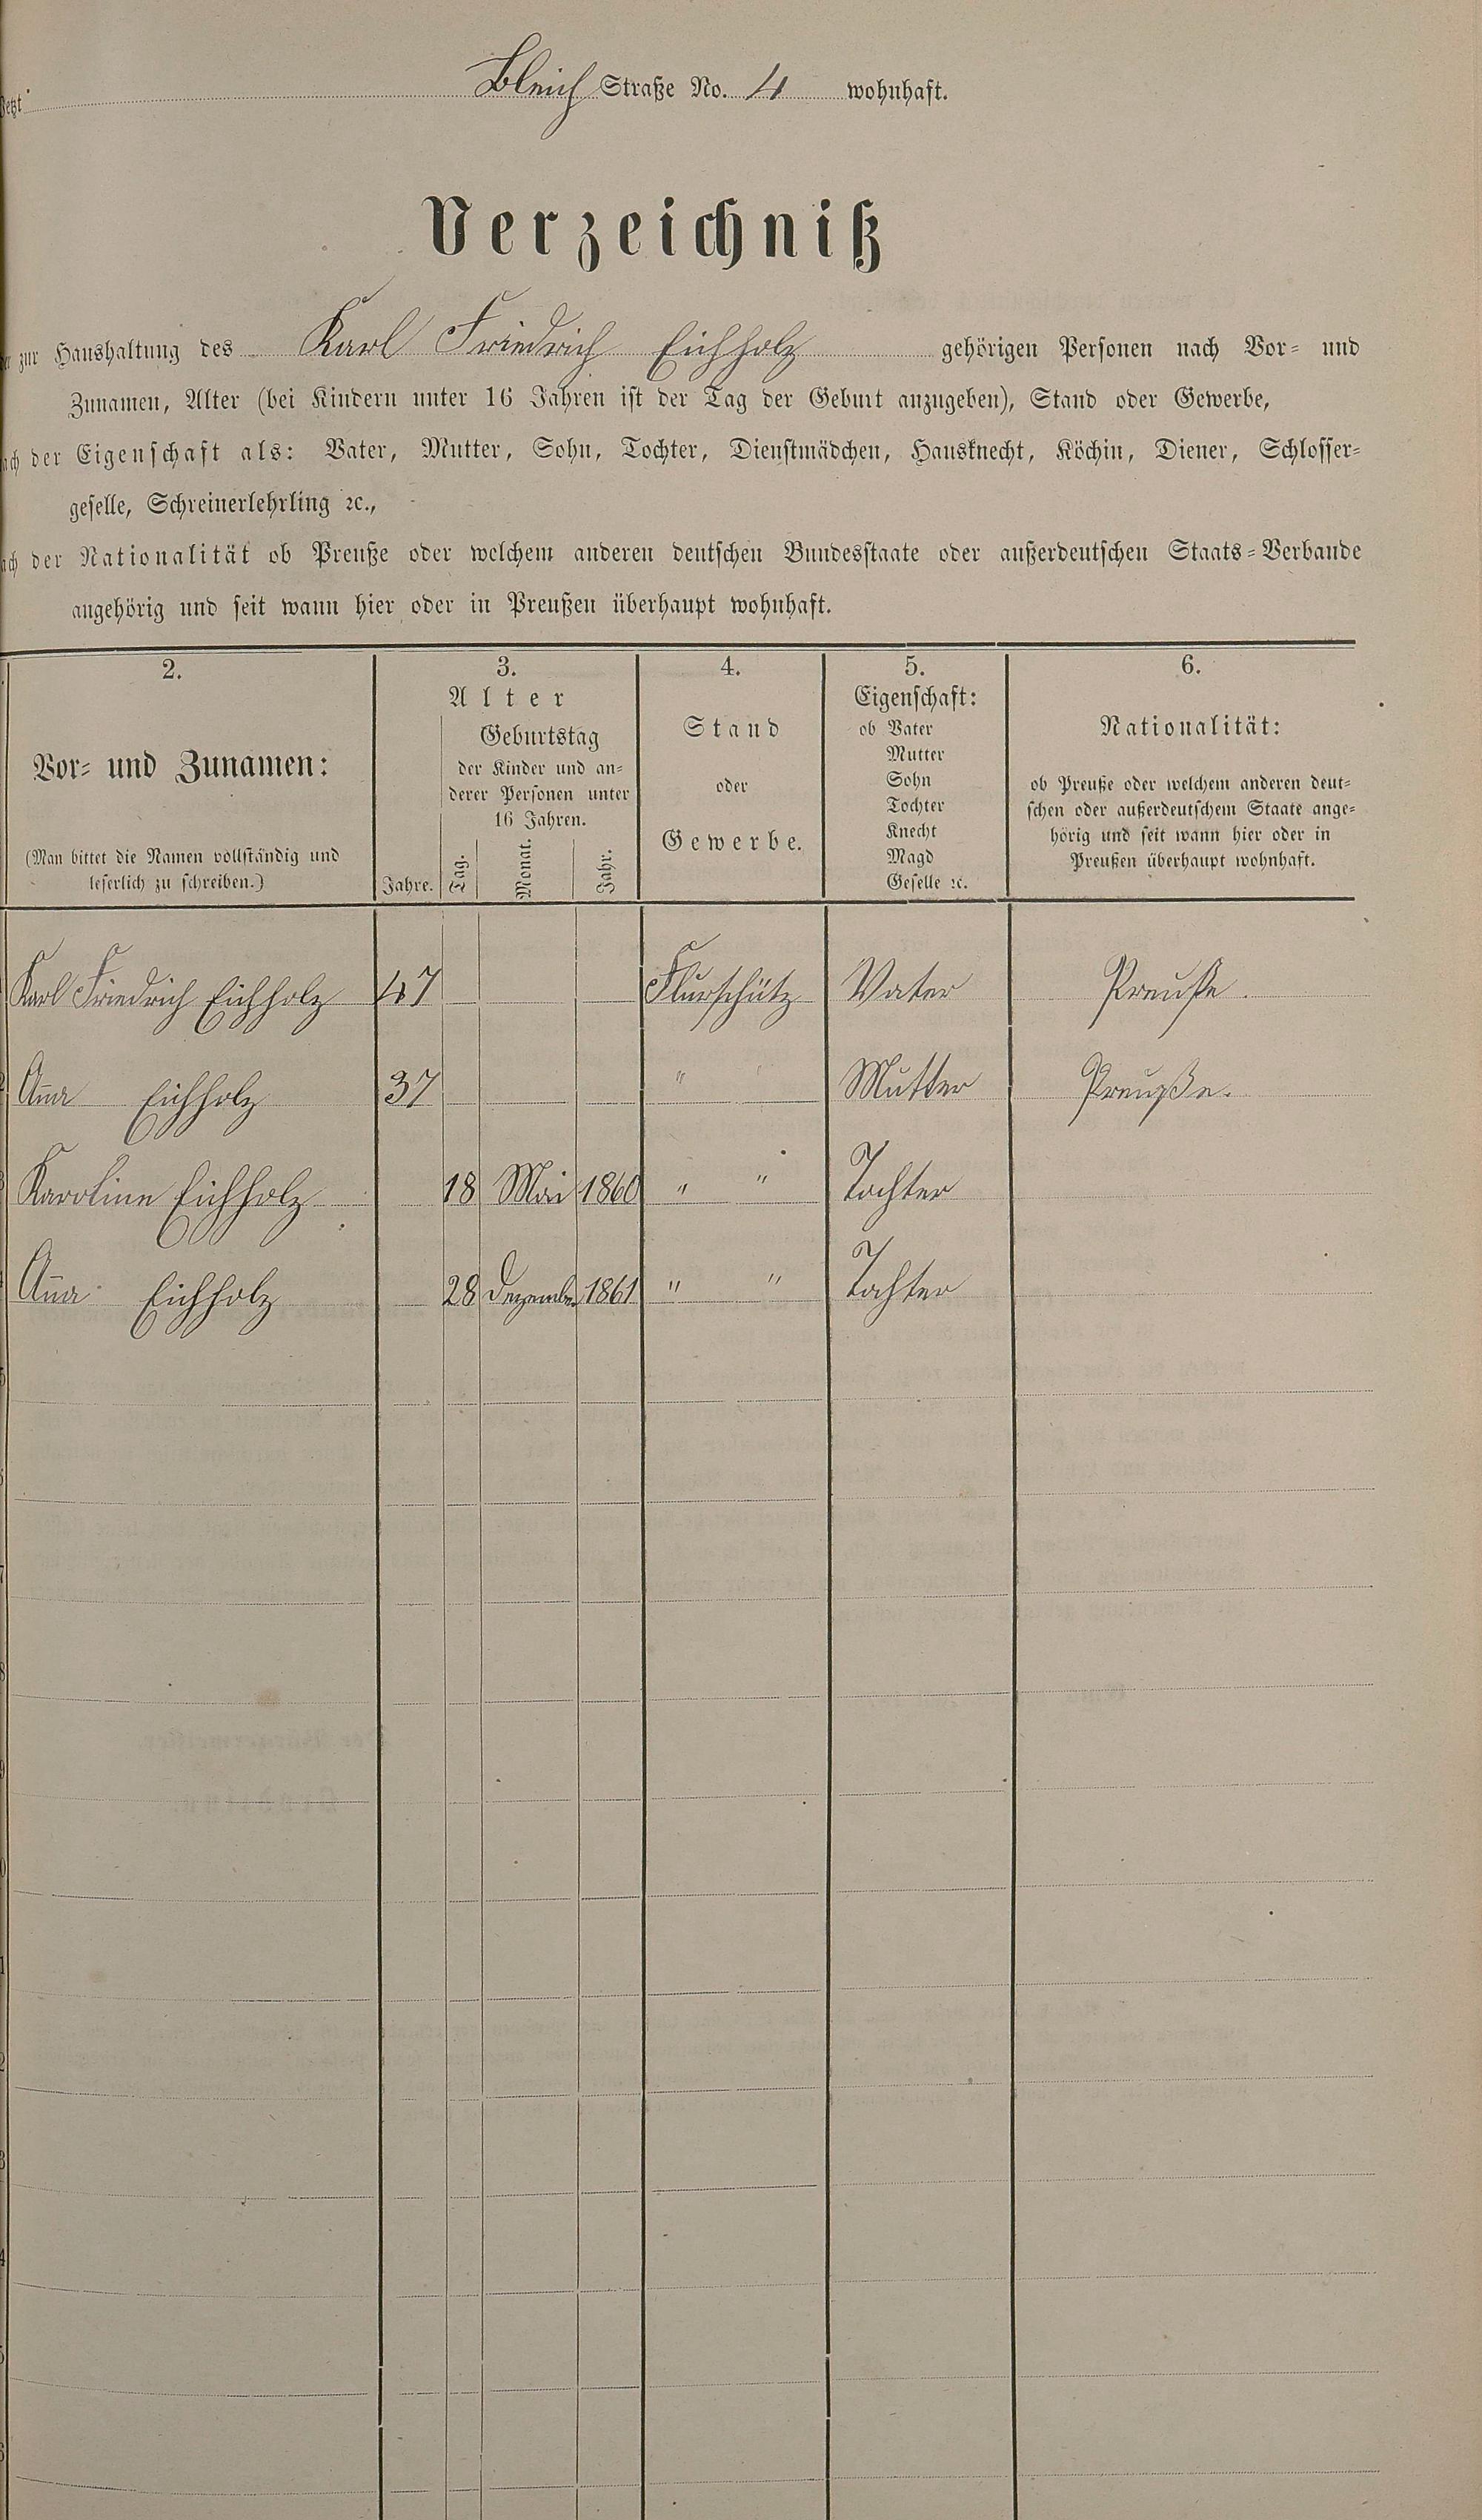 Jetzt Bleich Straße No. 4 wohnhaft.
Verzeichniß
der zur Haushaltung des Karl Friedrich Eichholz gehörigen Personen nach Vor- und
Zunamen, Alter (bei Kindern unter 16 Jahren ist der Tag der Geburt anzugeben), Stand oder Gewerbe,
nach der Eigenschaft als: Vater, Mutter, Sohn, Tochter, Dienstmädchen, Hausknecht, Köchin, Diener, Schlosser-
geselle, Schreinerlehrling ꝛc.,
nach der Nationalität ob Preuße oder welchem anderen deutschen Bundesstaate oder außerdeutschen Staats-Verbande
angehörig und seit wann hier oder in Preußen überhaupt wohnhaft.
2.
Vor- und Zunamen:
(Man bittet die Namen vollständig und
leserlich zu schreiben.)
3.
Alter
Geburtstag
der Kinder und an-
derer Personen unter
16 Jahren.
Jahre. Tag. Monat. Jahr.
4.
Stand
oder
Gewerbe.
5.
Eigenschaft:
ob Vater
Mutter
Sohn
Tochter
Knecht
Magd
Geselle ꝛc.
6.
Nationalität:
ob Preuße oder welchem anderen deut-
schen oder außerdeutschem Staate ange-
hörig und seit wann hier oder in
Preußen überhaupt wohnhaft.
Karl Friedrich Eichholz 47 Flurschütz Vater Preuße.
Aña Eichholz 37 " " Mutter Preuße.
Karoline Eichholz 18 Mai 1860 " " Tochter
Aña Eichholz 28 Dezember 1861 " " Tochter